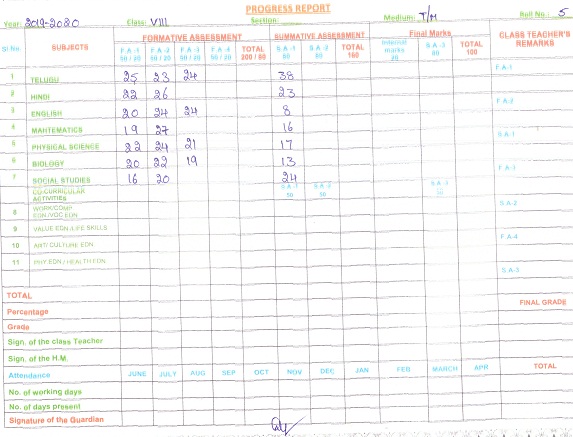 PROGRESS REPORT
Year: 2019-2020 Class: VIII Section: Medium: T/M Roll No.: 5
Sl No SUBJECTS FORMATIVE ASSESSMENT SUMMATIVE ASSESSMENT Final Marks CLASS TEACHER'S REMARKS
F.A -1 50 / 20 F.A -2 50 / 20 F.A -3 50 / 20 F.A -4 50 / 20 TOTAL 200 / 80 S.A -1 80 S.A -2 80 TOTAL 160 Internal marks 20 S.A -3 80 TOTAL 100
1 TELUGU 25 23 24 38 F.A-1
2 HINDI 22 26 23
3 ENGLISH 20 24 24 8 F.A-2
4 MAHTEMATICS 19 27 16
5 PHYSICAL SCIENCE 22 24 21 17 S.A-1
6 BIOLOGY 20 22 19 13
7 SOCIAL STUDIES 16 20 24 F.A-3
CO-CURRICULAR ACTIVITIES S.A -1 50 S.A -2 50 S.A -3 50
8 WORK/COMP. EDN./VOC EDN S.A-2
9 VALUE EDN./LIFE SKILLS
10 ART/ CULTURE EDN F.A-4
11 PHY.EDN / HEALTH EDN
S.A-3
TOTAL
Percentage FINAL GRADE
Grade
Sign. of the class Teacher
Sign. of the H.M.
Attendance JUNE JULY AUG SEP OCT NOV DEC JAN FEB MARCH APR TOTAL
No. of working days
No. of days present
Signature of the Guardian